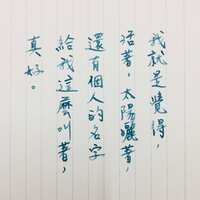 我就是覺得，
活著，太陽曬著，
還有個人的名字
給我這麼叫著，
真好。